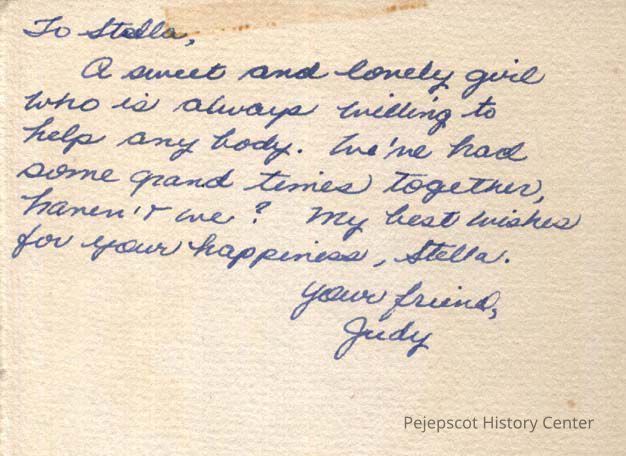 To Stella,
A sweet and lonely girl
who is always willing to
help any body. We've had
some grand times together,
haven't we? My best wishes
for your happiness, Stella.
Your friend,
Judy
Pejepscot History Center